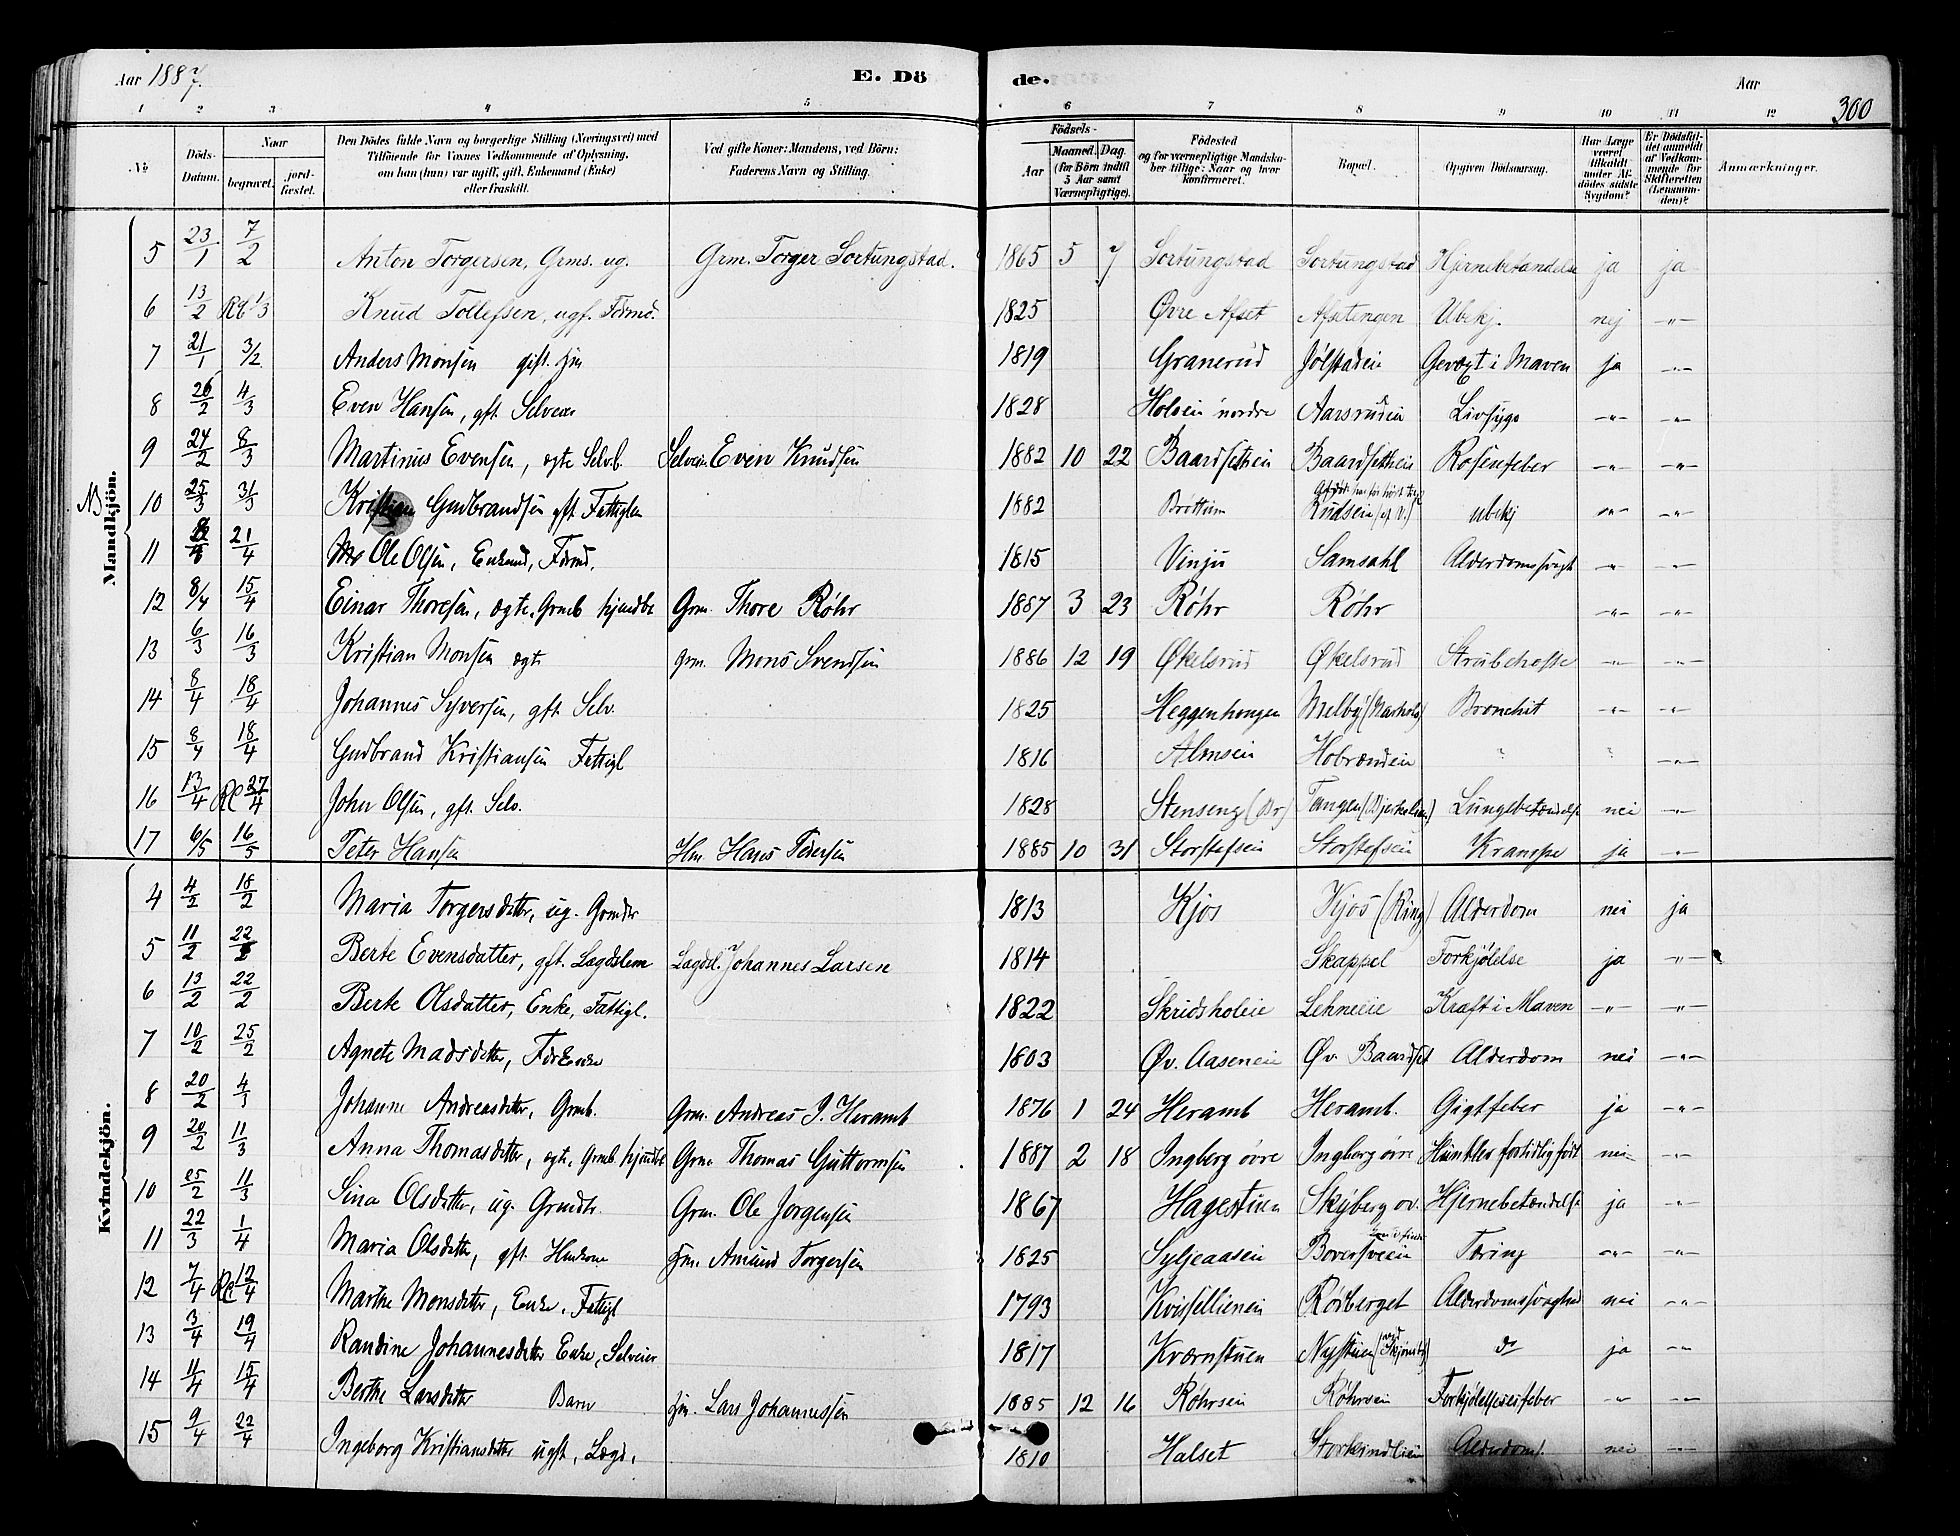 Aar 1887.
E. Dö de.
Aar
300
1 2 3 4 5 6 7 8 9 10 11 12
No
Döds-Datum.
Naar
begravet.
jord-fæstet.
Den Dödes fulde Navn og borgerlige Stilling (Næringsvei) med Tilföiende for Voxnes Vedkommende af Oplysning, om han (hun) var ugift, gift, Enkemand (Enke) eller fraskilt.
Ved gifte Koner: Mandens, ved Börn: Faderens Navn og Stilling.
Födsels-
Aar
Maaned. Dag.
(for Börn indtil 5 Aar samt Værnepligtige).
Födested
og for værnepligtige Mandska-ber tillige: Naar og hvor konfirmeret.
Bopæl.
Opgiven Dödsaarsag.
Har Læge været tilkaldt under Af-dödes sidste Sygdom?
Er Dödsfal-det anmeldt af Vedkom-mende for Skifteretten (Lensman-den)?
Anmærkninger.
Mandkjön.
5 23/1 7/2 Anton Torgersen, Grms. ug. Grm. Torger Sortungstad. 1865 5 7 Sortungstad Sortungstad Hjernebetændelse ja ja
6 13/2 1/3 Knud Tollefsen, ugf. 1825 Øvre Afset Afsetengen Ubekj. nej -"-
7 21/1 3/2 Anders Monsen gift. 1819 Granerud Jølstadeie Gevæxt i Maven ja -"-
8 26/2 4/3 Even Hansen, gft. Selveier 1828 Holseie nordre Aarsrudeie Livsyge -"- -"-
9 24/2 8/3 Martinus Evensen, ægte Selvb. Selveier Even Knudsen 1882 10 22 Baardsetheie Baardsetheie Rosenfeber -"- -"-
NB 10 25/3 31/3 Kristian Gudbrandsen gft Fattiglem 1882 Brøttum Rudseie ubekj -"- -"-
11 21/4 Ole Olsen, Enkemd, 1815 Vinju Samsahl Alderdomssvagh -"- -"-
12 8/4 15/4 Einar Thoresen, ægte. Grmb hjemdbt Grm. Thore Røhr 1887 3 23 Røhr Røhr -"- -"-
13 6/3 16/3 Kristian Monsen ægte grm. Mons Svendsen 1886 12 19 Økelsrud Økelsrud Strubehoste -"- -"-
14 8/4 18/4 Johannes Syversen, gft Selv. 1825 Heggenhougen Melby Bronchit -"- -"-
15 8/4 18/4 Gudbrand Kristiansen Fattigl 1816 Almseie " " -"-
16 13/4 27/4 John Olsen, gft. Selv. 1828 Stenseng (Br) Tangen Lungebetændelse nei -"-
17 6/5 16/5 Peter Hansen Hm Hans Pedersen 1885 10 31 Storstefseie Storstefseie Krampe ja -"-
Kvindekjön.
4 4/2 18/2 Maria Torgersdatter, ug. Grmdtr 1813 Kjos Kjos (Ring) Alderdom nei ja
5 11/2 22/2 Berte Evensdatter, gft. Lægdslem Lægdsl. Johannes Larsen 1814 Skappel Forkjølelse ja -"-
6 13/2 22/2 Berte Olsdatter, Enke, Fattigl. 1822 Skridsholeie Lehneeie Kræft i Maven -"- -"-
7 10/2 25/2 Agnete Madsdatter, 1803 Øv. Aaseneie Øv. Baardset Alderdom nei -"-
8 20/2 4/3 Johanne Andreasdatter, Grmb. Grm. Andreas J. Heramb 1876 1 24 Heramb Heramb. Gigtfeber ja -"-
9 20/2 11/3 Anna Thomasdatter, ægte. Grmb. hjemdbt Grm. Thomas Guttormsen 1887 2 18 Ingberg øvre Ingberg øvre fortidlig født nei -"-
10 25/2 11/3 Sina Olsdatter, ug. Grmdtr. Grm. Ole Jørgensen 1867 Hagestuen Skyberg øv. Hjernebetændelse ja -"-
11 22/3 1/4 Maria Olsdatter, gft Amund Torgersen 1825 Syljeaaseie Tæring -"- -"-
12 7/4 12/4 Marthe Monsdatter, Enke. Fattigl 1793 Kvisellieneie Rødberget Alderdomssvaghed nei -"-
13 3/4 19/4 Randine Johannesdatter Enke, Selveier 1817 Kværnstuen Nystuen (ved Skjønsby) do ja -"-
14 11/4 15/4 Berthe Larsdatter Barn Lars Johannessen 1885 12 16 Røhrseie Røhrseie Forkjølelsesfeber -"- -"-
15 9/4 22/4 Ingeborg Kristiansdatter ugft, Lægd. 1810 Halset Alderdom. nei -"-